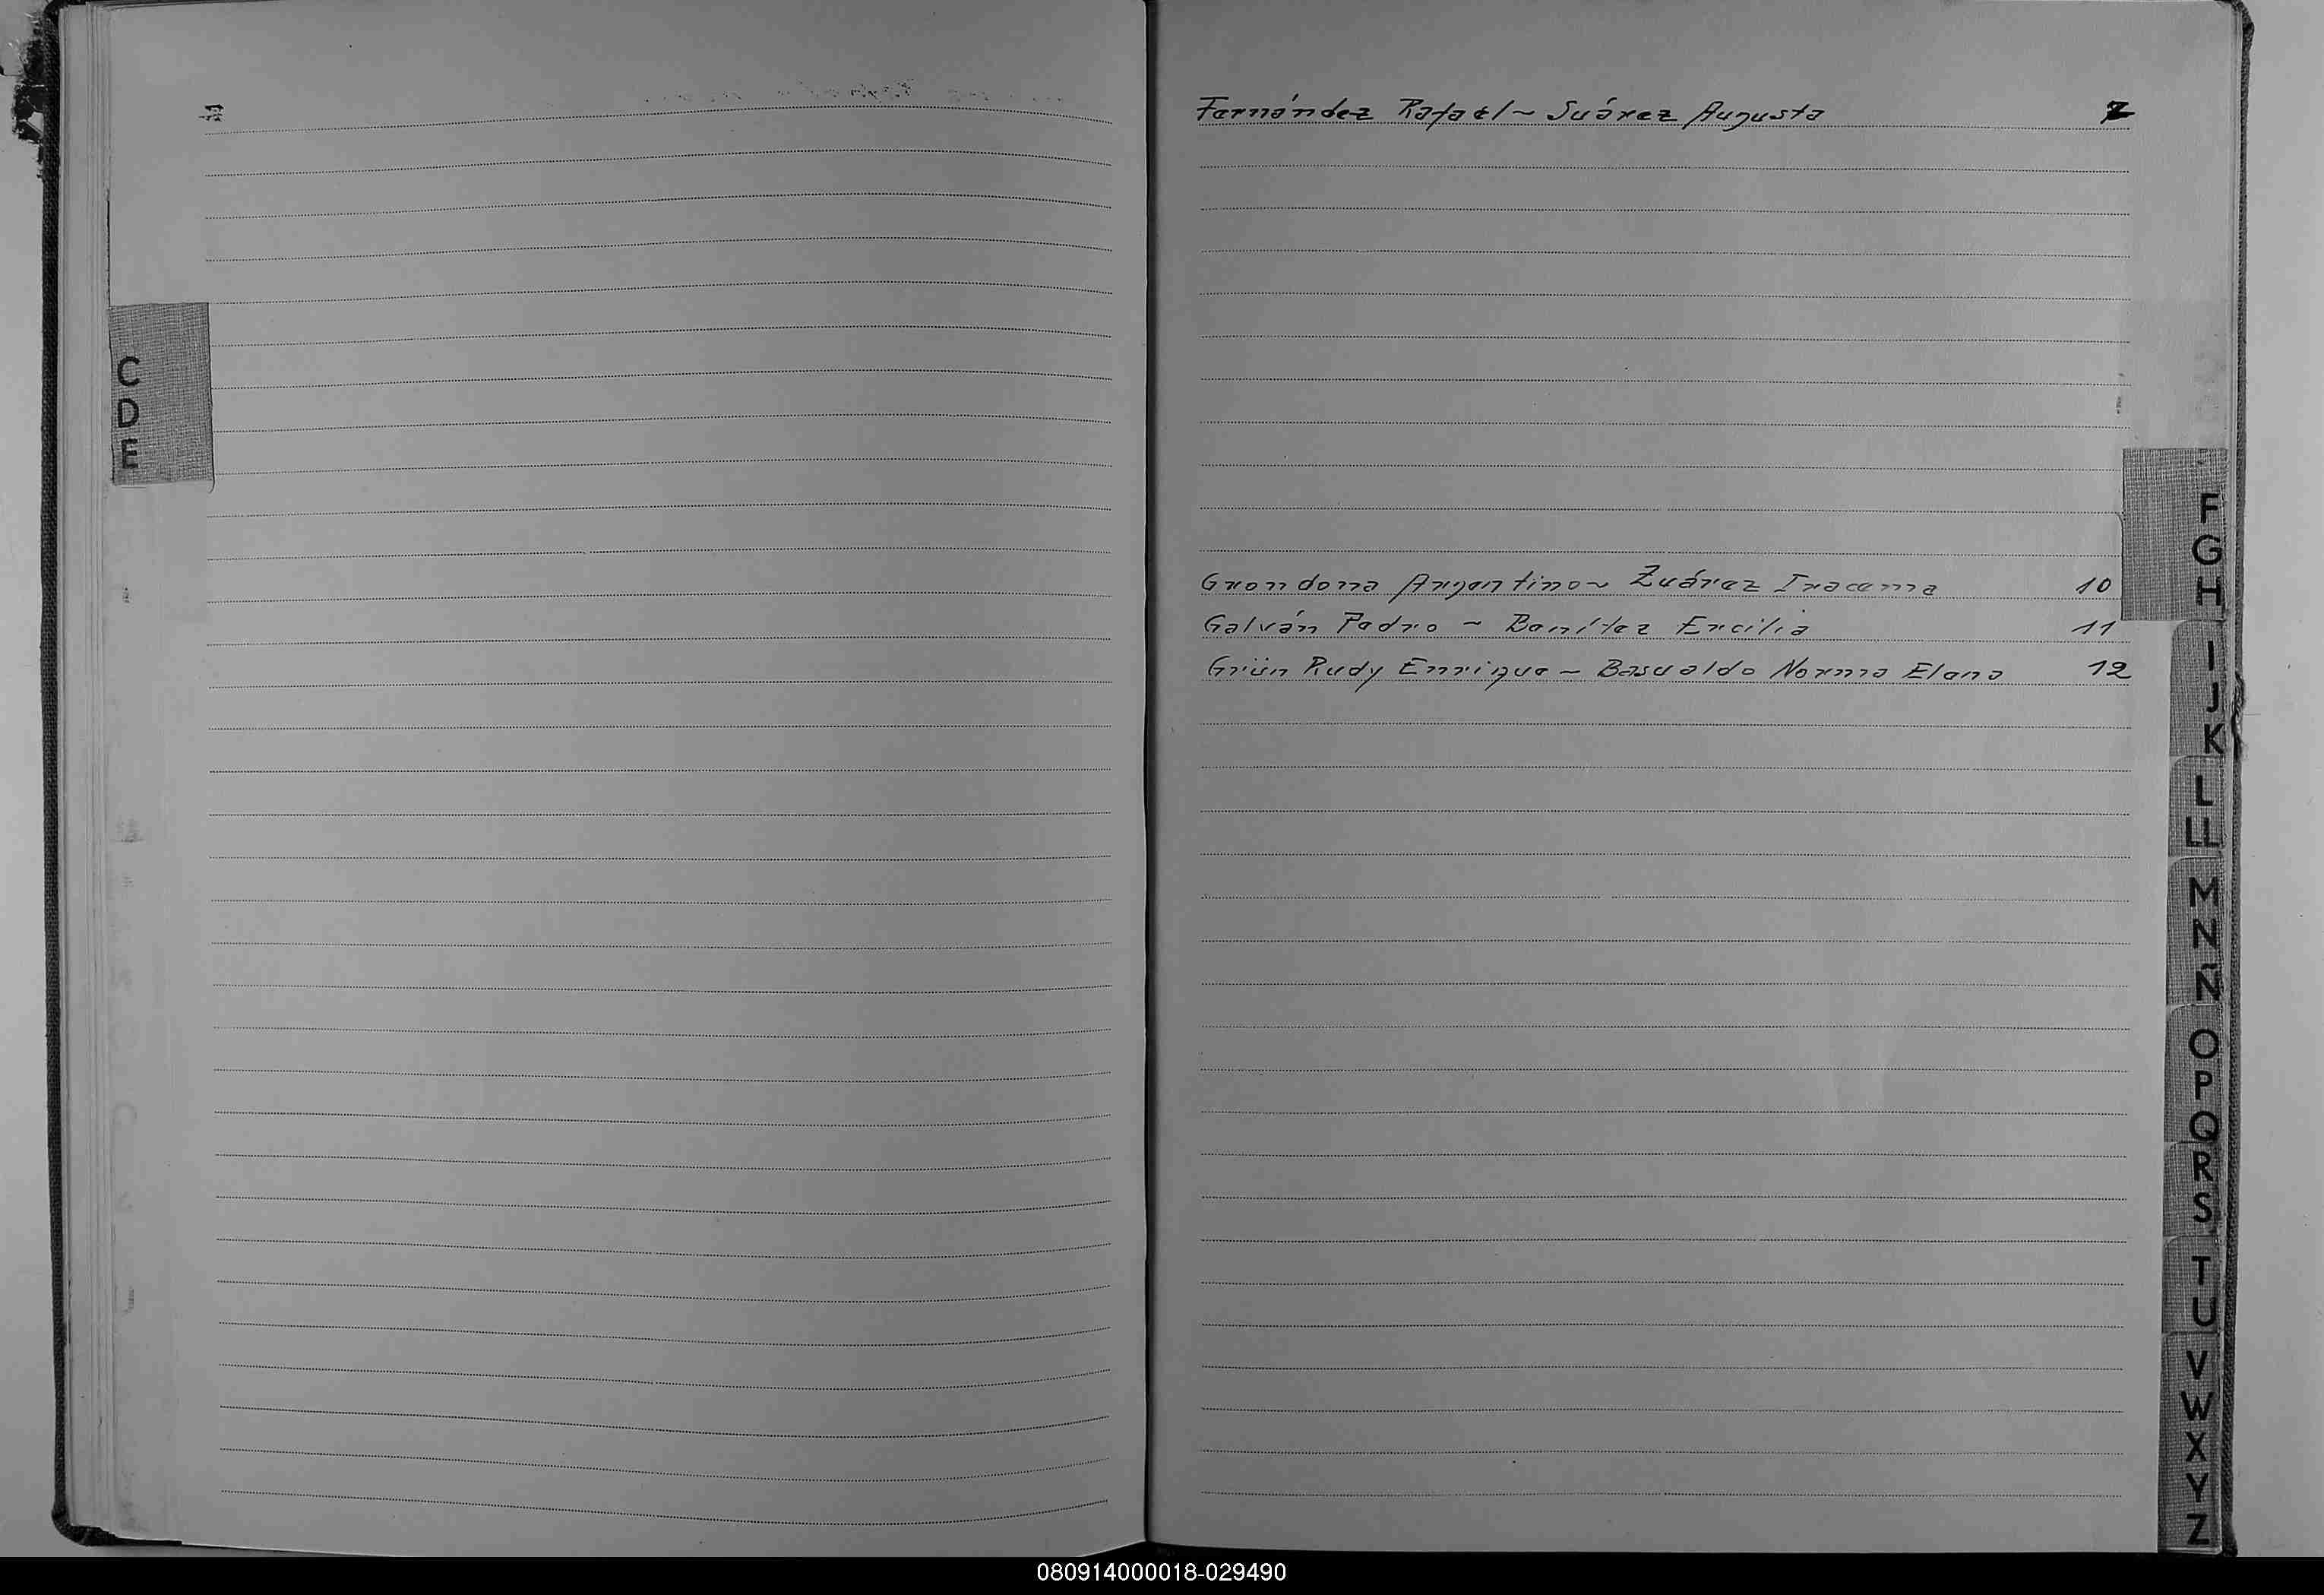 Fernández Rafael ~ Suárez Augusta 7
Grondona Argentino ~ Zuárez Iracema 10
Galván Pedro ~ Benítez Ercilia 11
Grün Rudy Enrique ~ Basualdo Norma Elena 12
C
D
E
F
G
H
I
J
K
L
LL
M
N
Ñ
O
P
Q
R
S
T
U
V
W
X
Y
Z
080914000018-029490